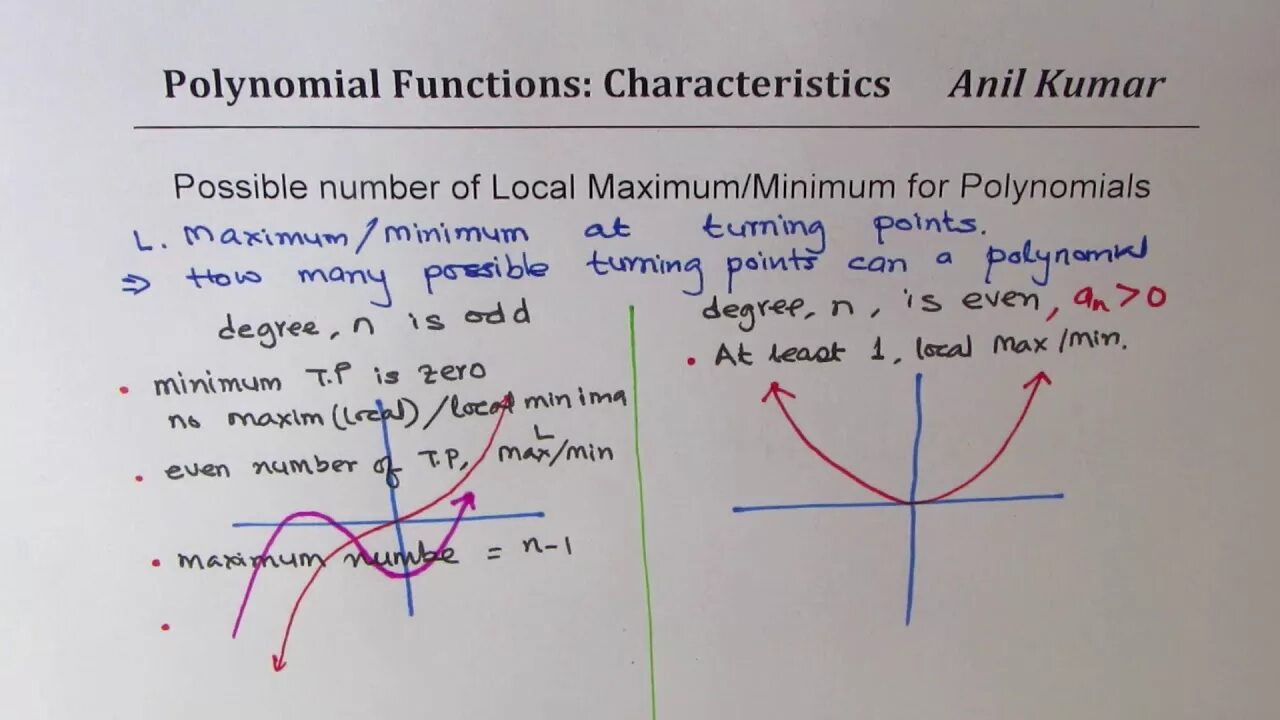 Polynomial Functions: Characteristics Anil Kumar
Possible number of Local Maximum/Minimum for Polynomials
L. maximum/minimum at turning points.
⇒ How many possible turning points can a polynomial
degree, n is odd
• minimum T.P is zero
no maxim(local)/local minima
• even number of T.P, max/min
L
• maximum numbe = n-1
•
degree, n, is even, aₙ>0
• At least 1, local max/min.